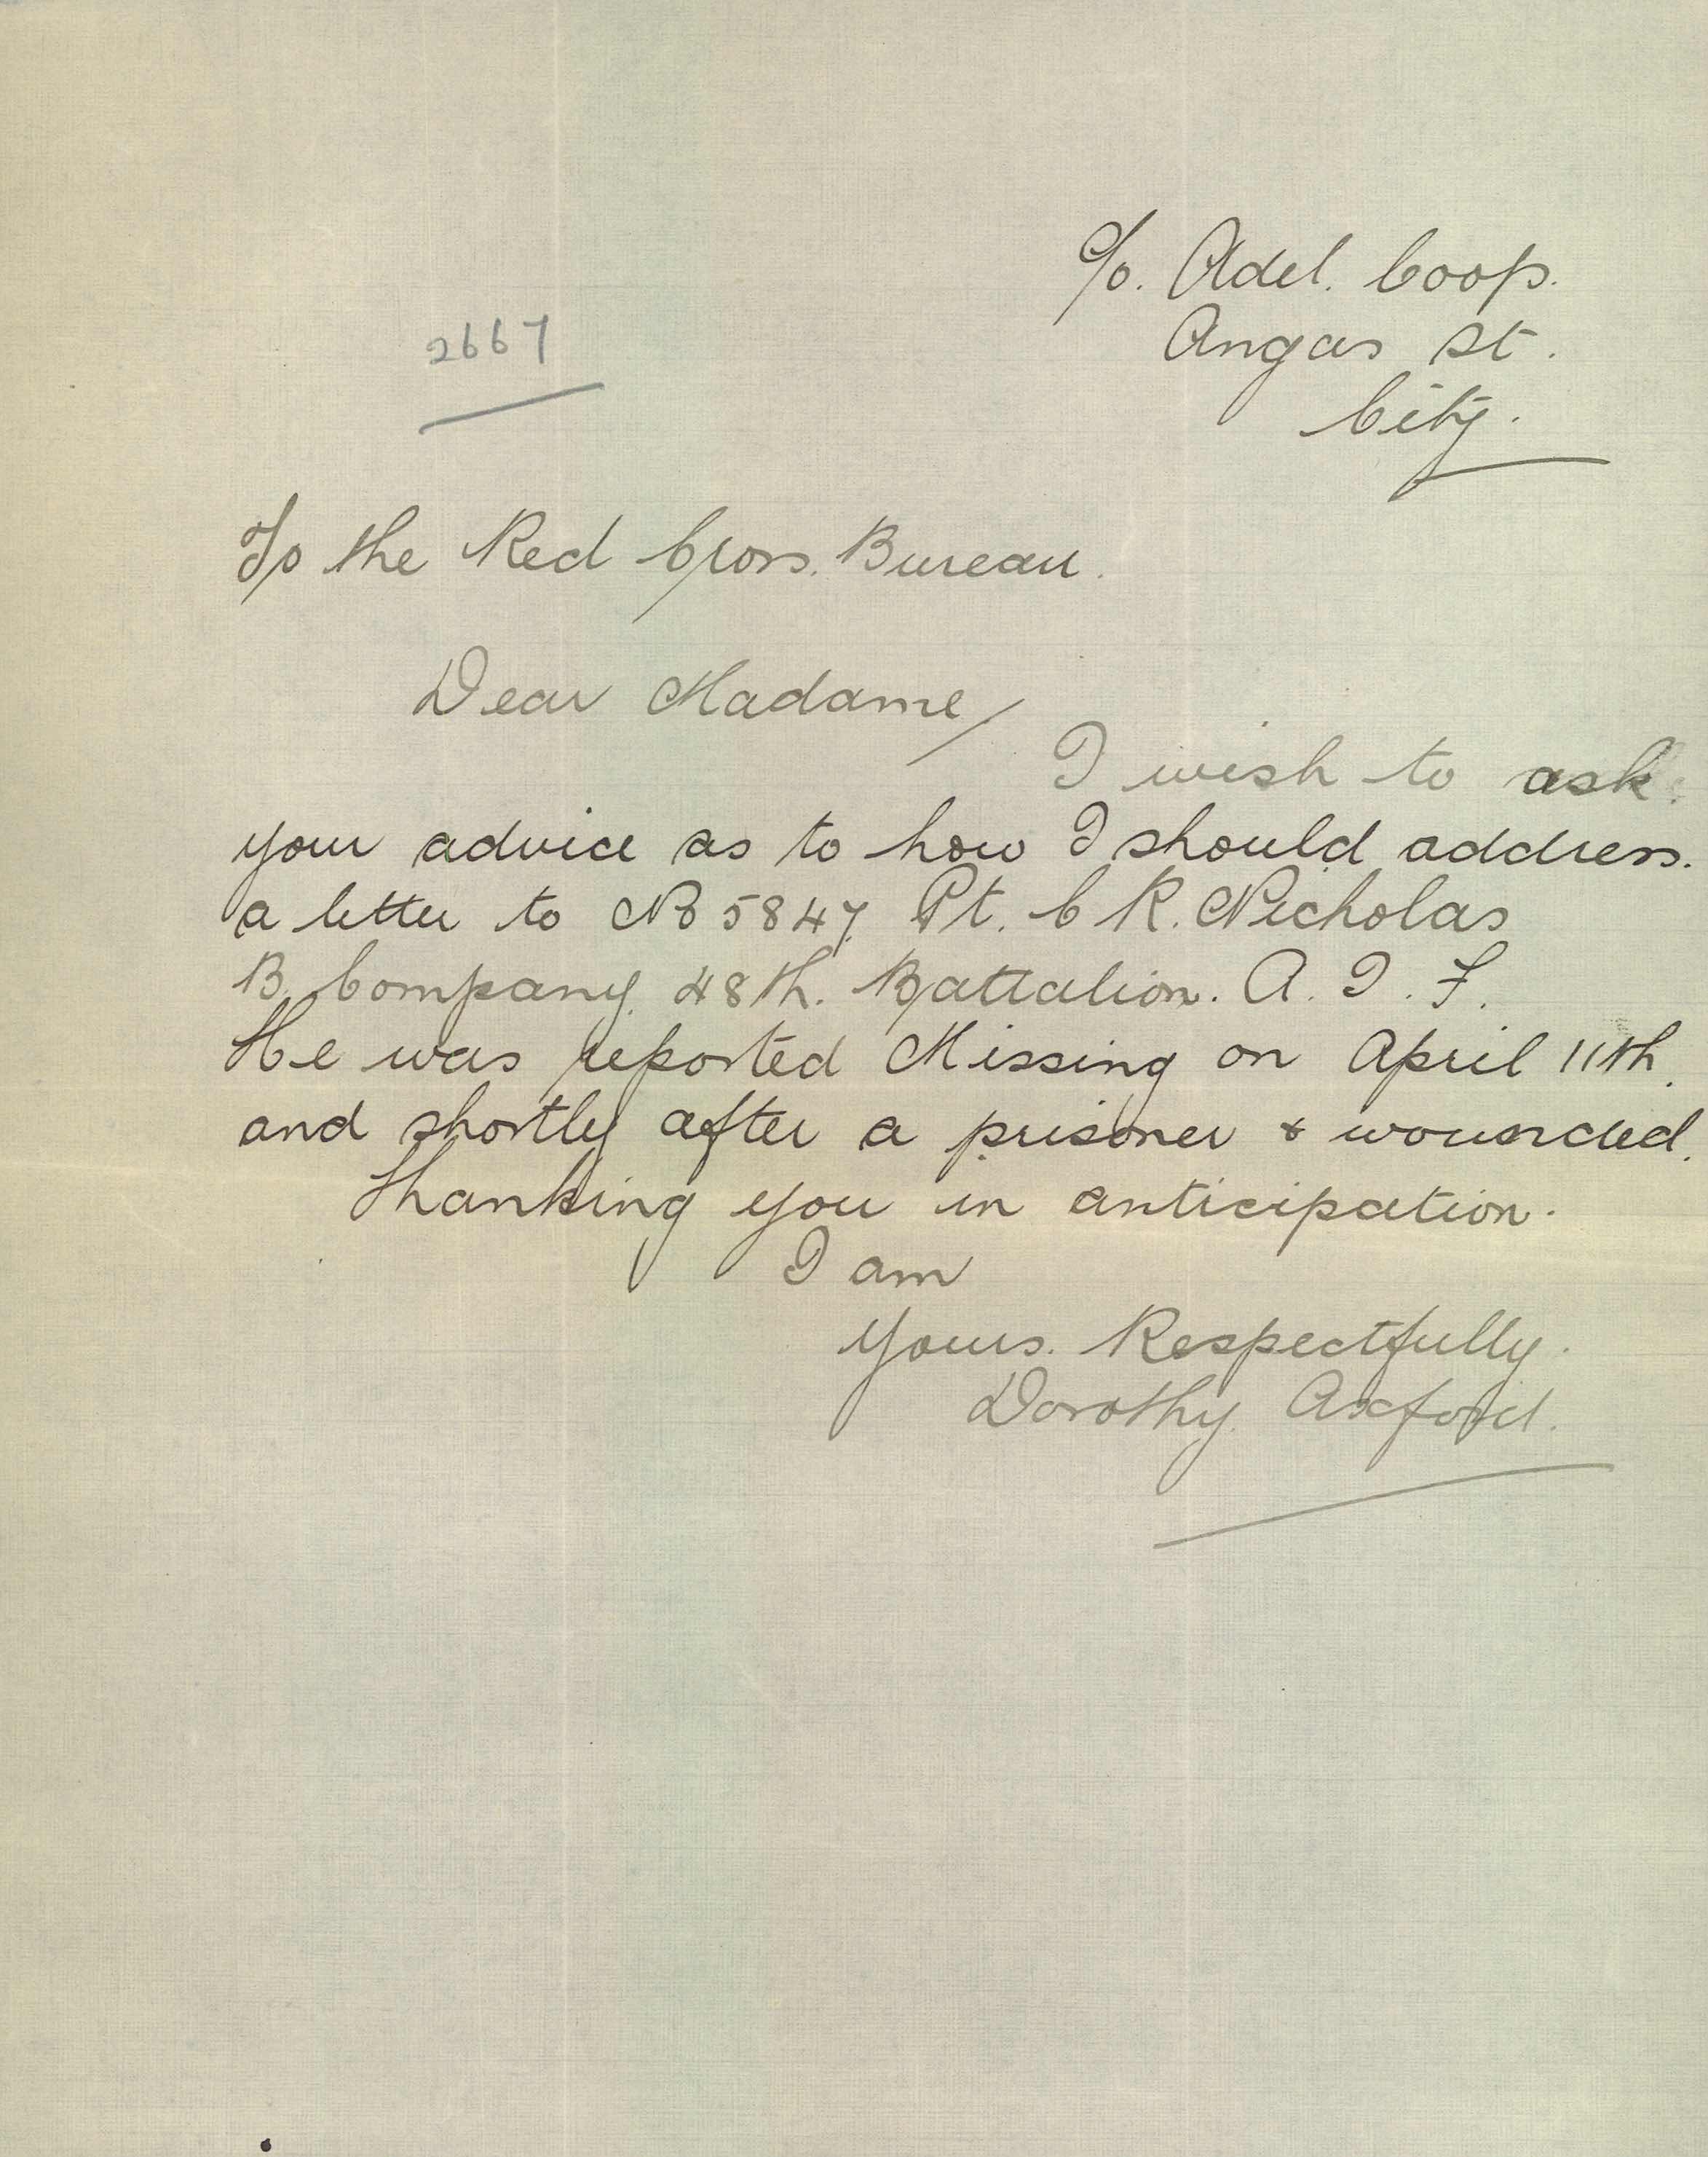 c/o. Adel. Coop.
Angas St.
City.
2667
To the Red Cross. Bureau.
Dear Madame/
I wish to ask.
your advice as to how I should address.
a letter to No 5847. Pt. C R. Nicholas
B. Company. 48th. Battalion. A. I. F.
He was reported Missing on April 11th.
and shortly after a prisoner & wounded.
Thanking you in anticipation.
I am
Yours. Respectfully.
Dorothy. Axford.